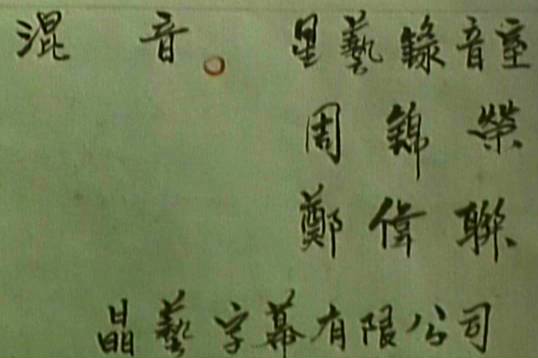 混音。 星藝錄音室
周錦榮
鄭偉聯
晶藝字幕有限公司